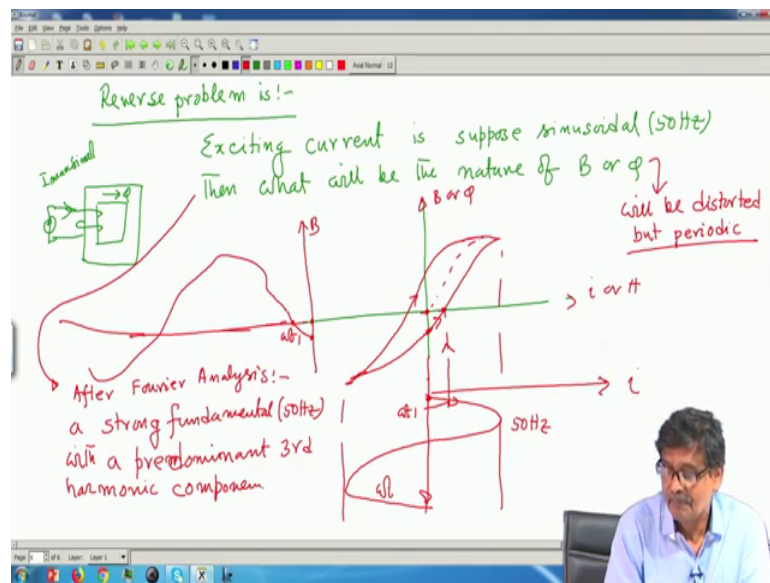 Journal
File Edit View Page Tools Options Help
Arial Normal 12
Reverse problem is:-
Exciting current is suppose sinusoidal (50Hz)
Then what will be the nature of B or φ
will be distorted
but periodic
I
→φ
B
B or φ
i or H
ωt₁
λ
ωt₁
i
50HZ
ωt
After Fourier Analysis:-
a strong fundamental (50Hz)
with a predominant 3rd
harmonic componen
Page 6 of 6 Layer: Layer 1